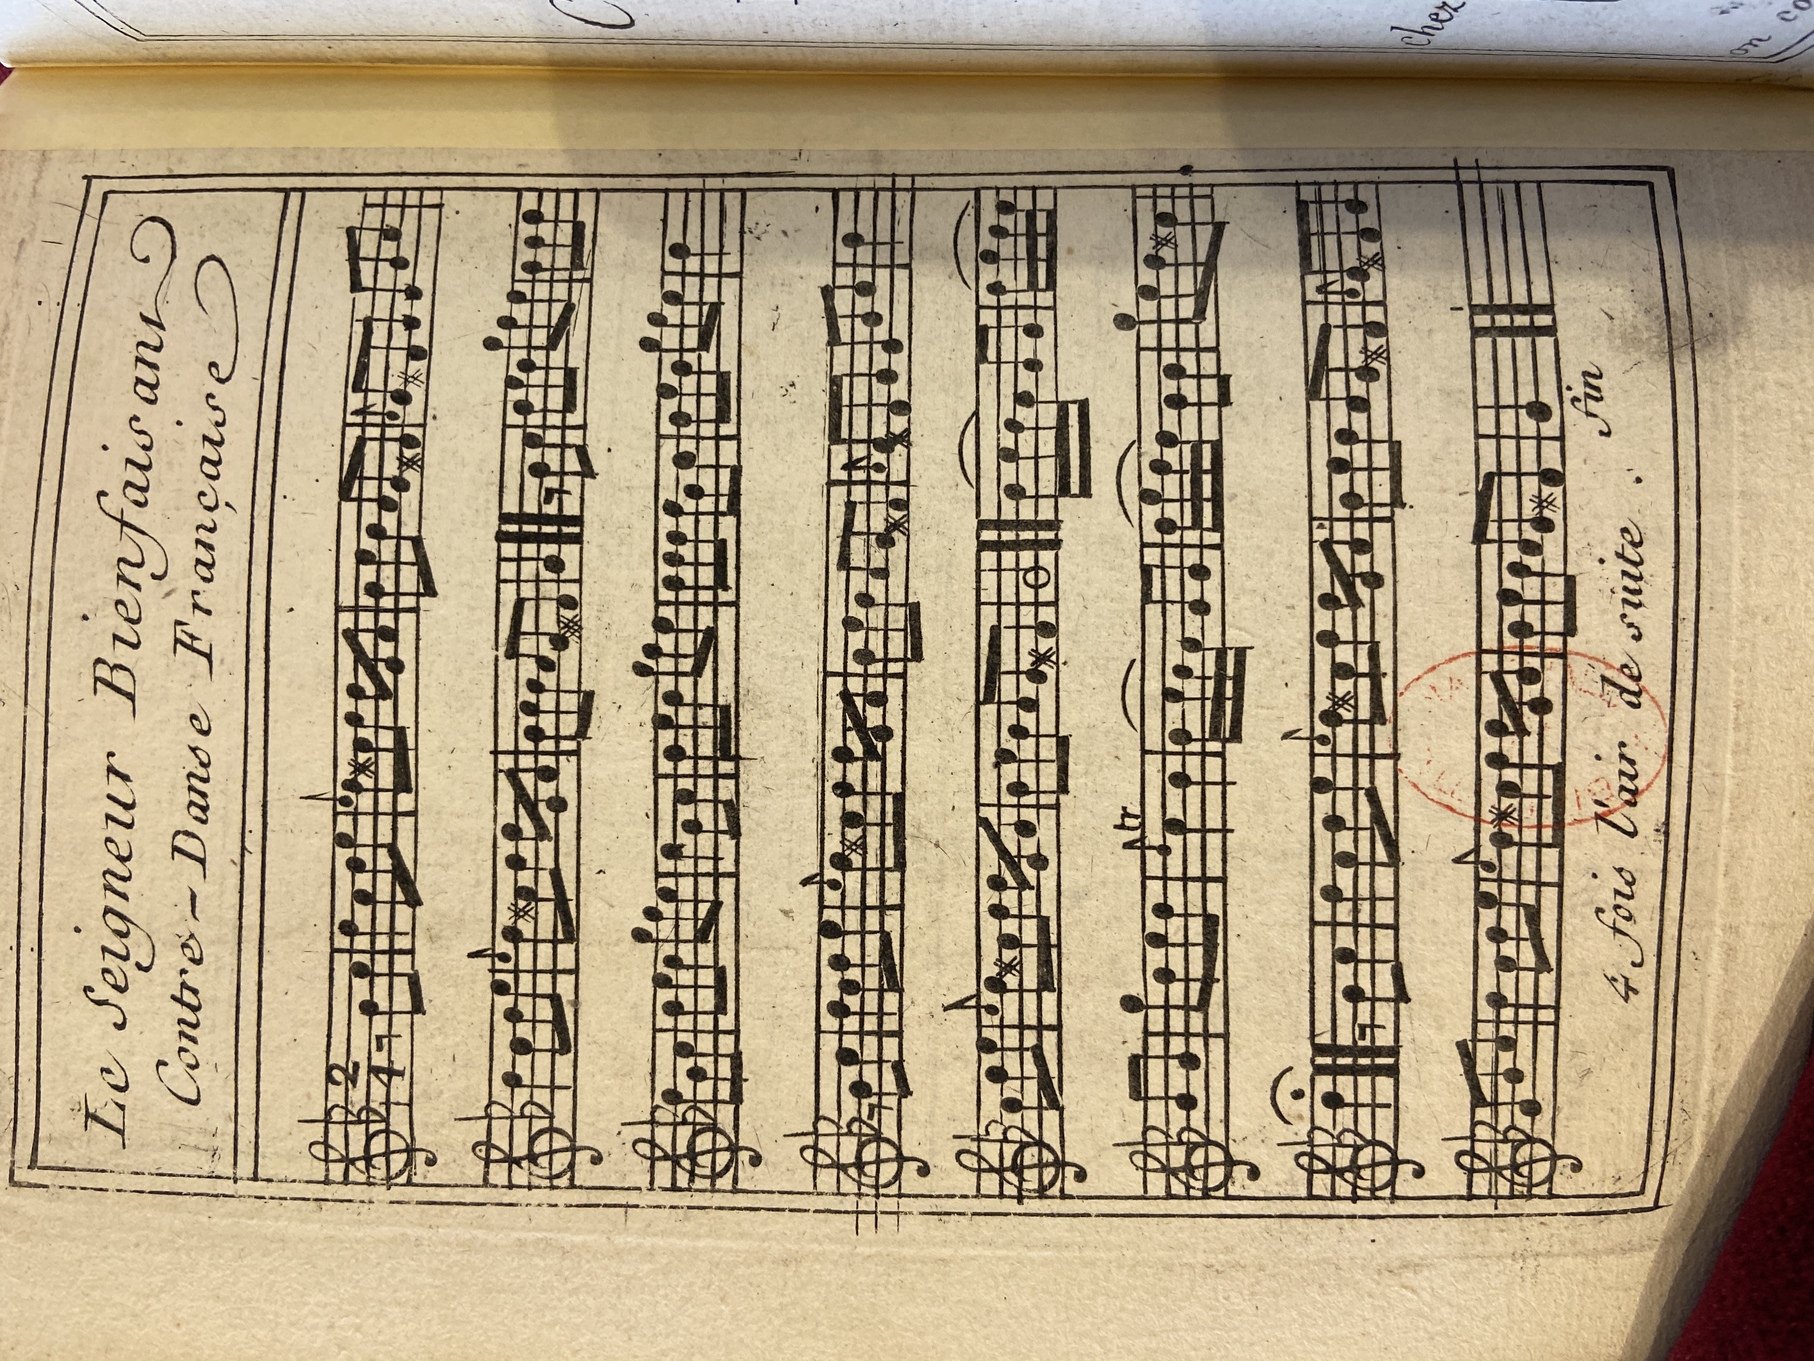 Le Seigneur Bienfaisant
Contre-Danse Française
2
4
tr
4 fois l'air de suite . fin
chez
on